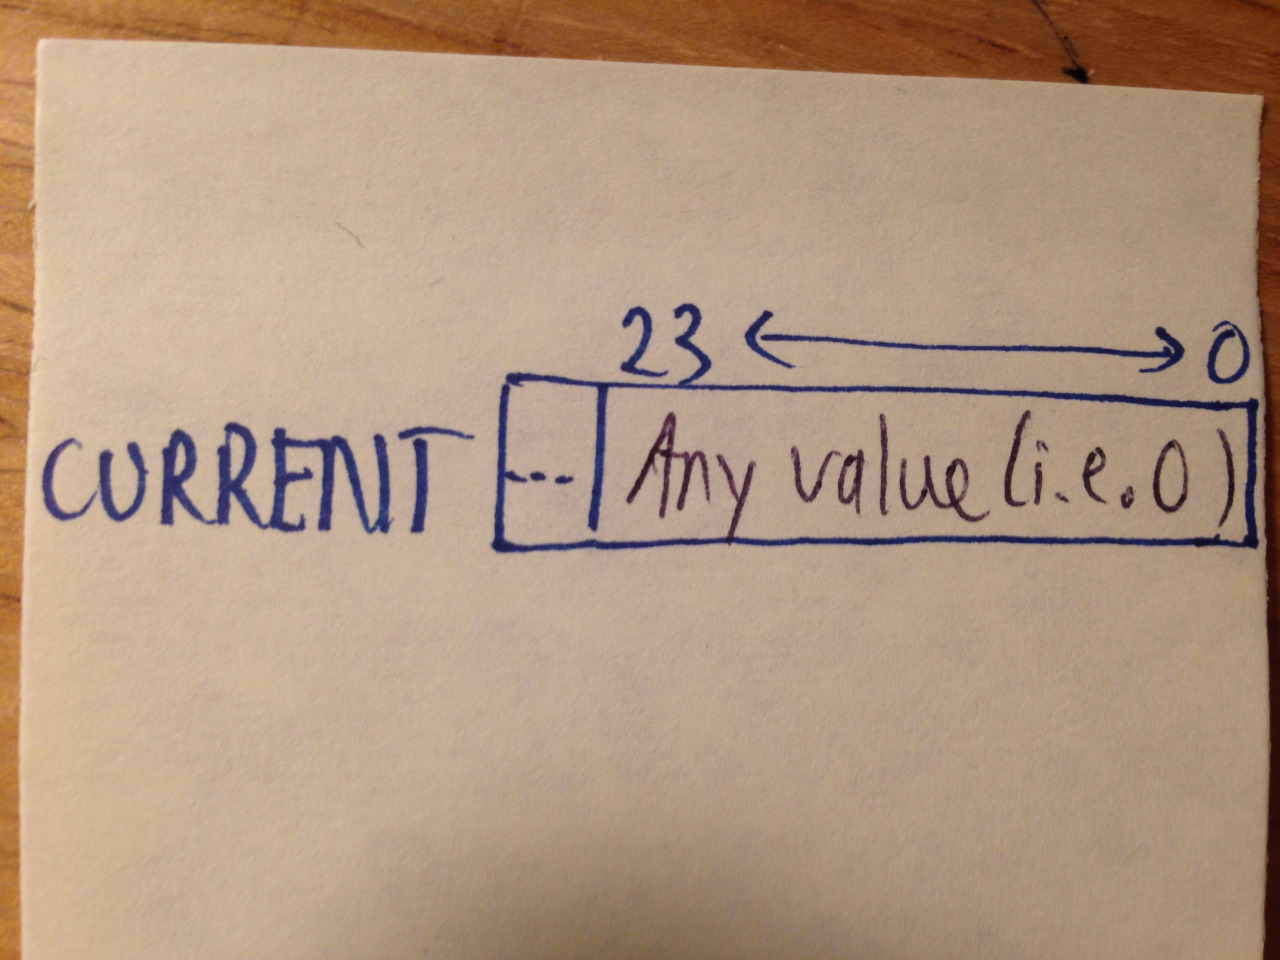 23 <-> 0
CURRENT --- Any value (i.e. 0)